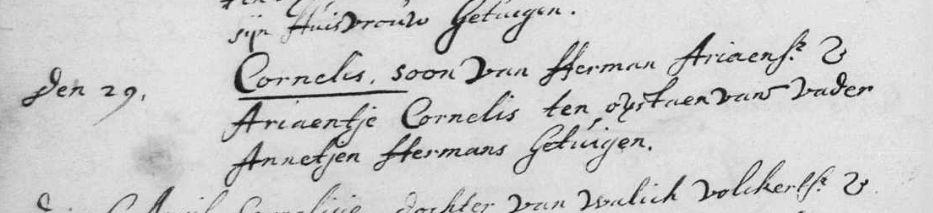 sijn Huisvrouw Getuigen.
den 29. Cornelis. soon van Herman Ariaensz. &
Ariaentje Cornelis ten opstaen van vader
Annetjen Hermans Getuigen.
Cornelisje dochter van Walich Volckertsz. &